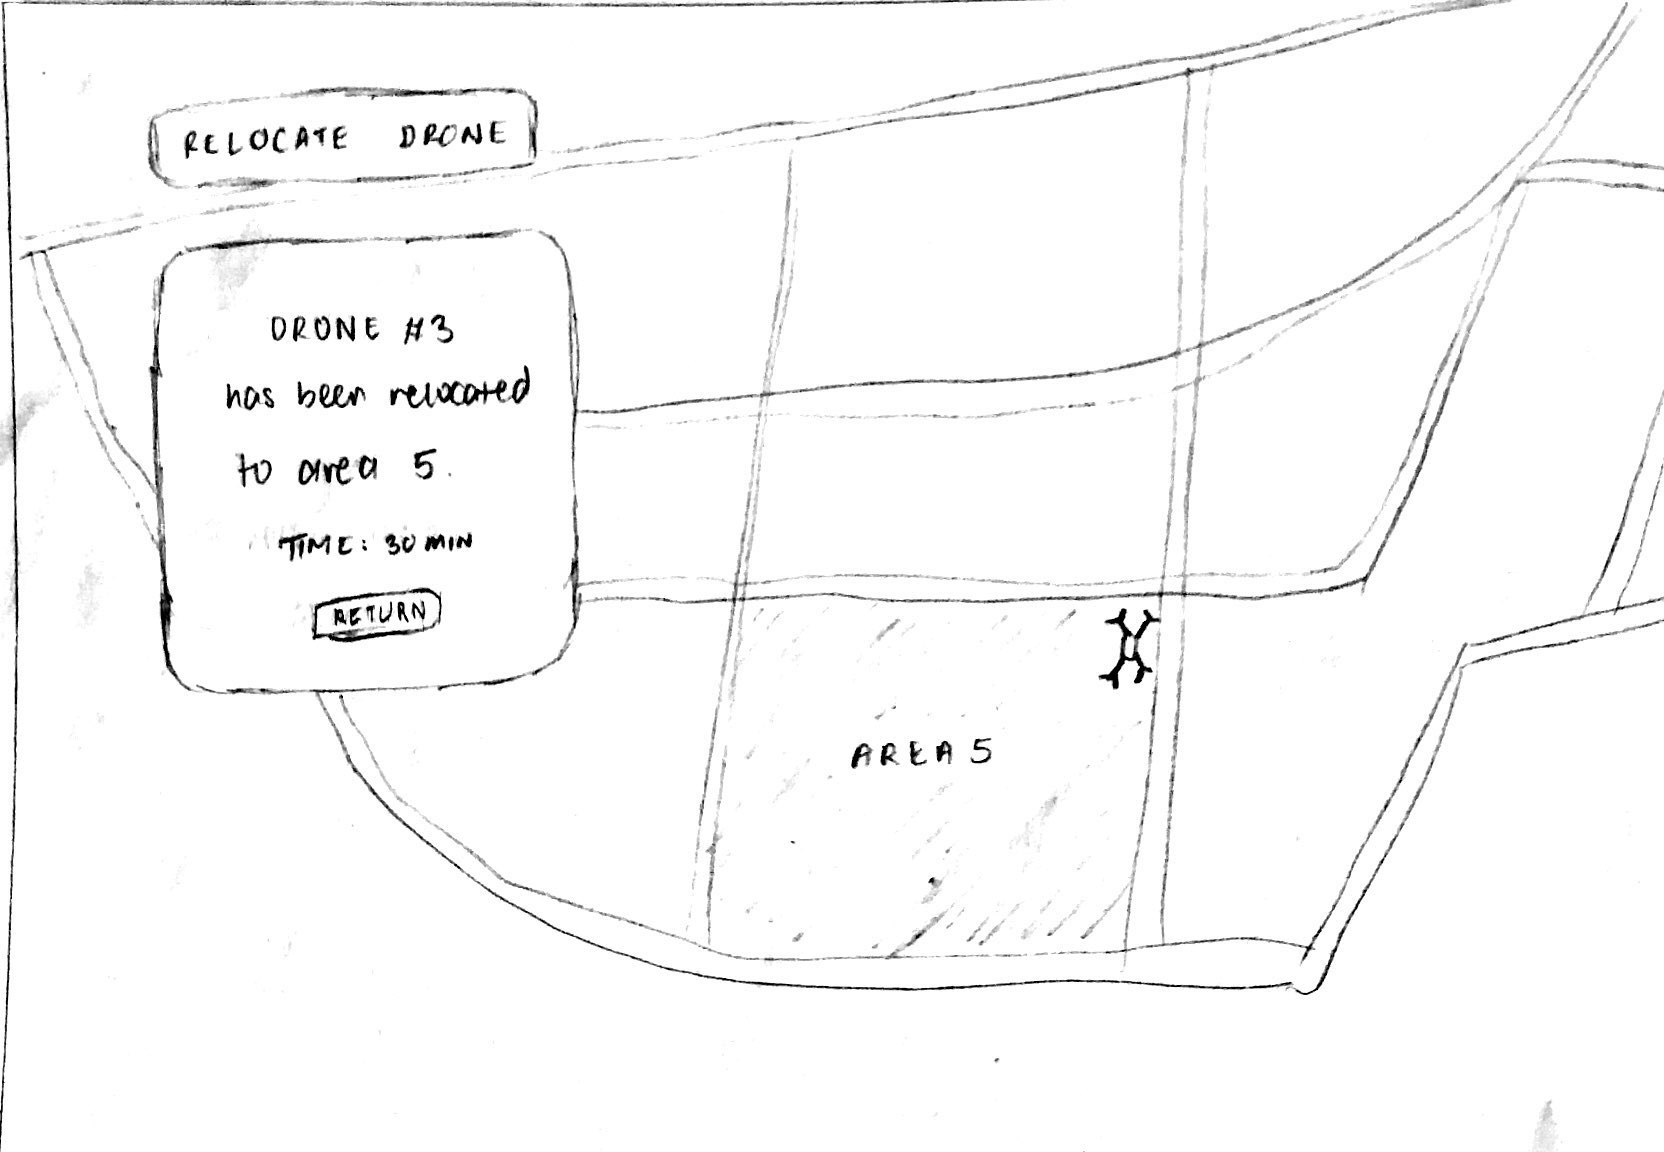 RELOCATE DRONE
DRONE #3
has been relocated
to area 5.
TIME: 30 MIN
RETURN
AREA 5